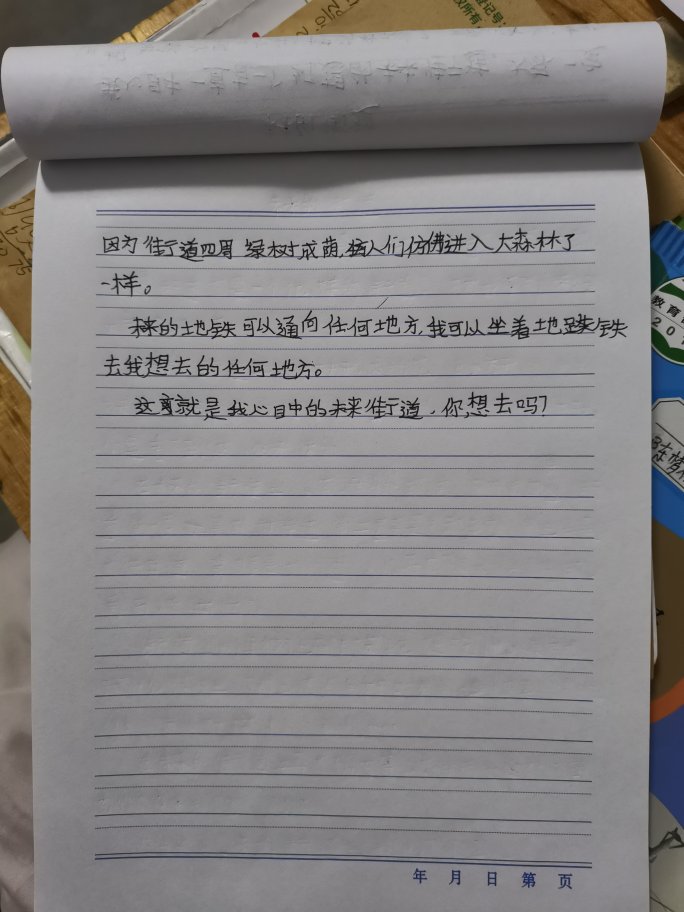 因为街道四周绿树成萌,人们仿佛进入大森林了
一样。
未来的地铁可以通向任何地方,我可以坐着地铁
去我想去的任何地方。
这就是我心目中的未来街道,你想去吗?
年 月 日 第 页
教育